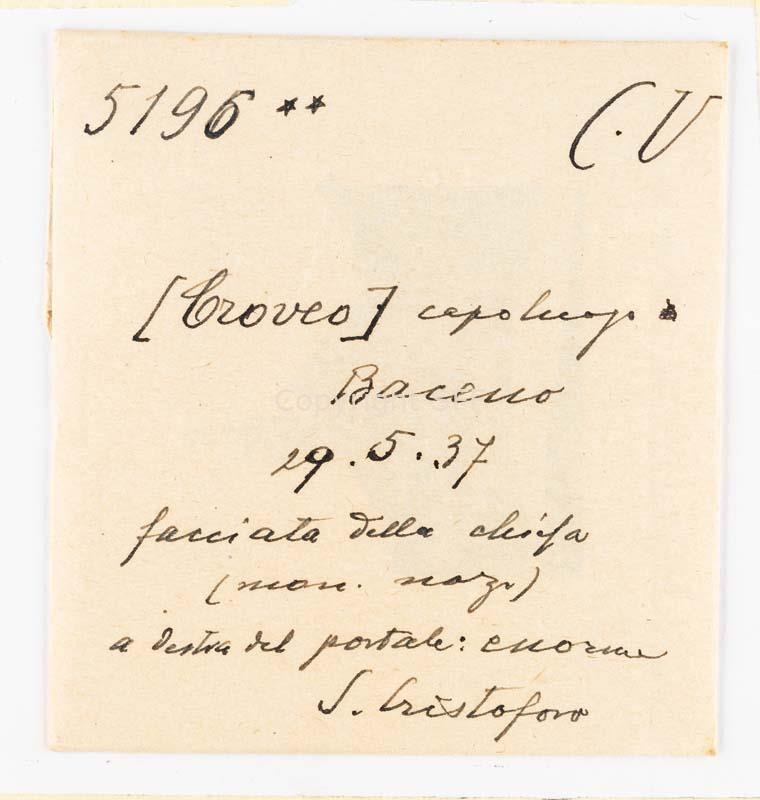 5196 ** C.V
[Croveo] capoluogo
Baceno
29.5.37
facciata della chiesa
(mon. naz.)
a destra del portale: enorme
S. Cristoforo